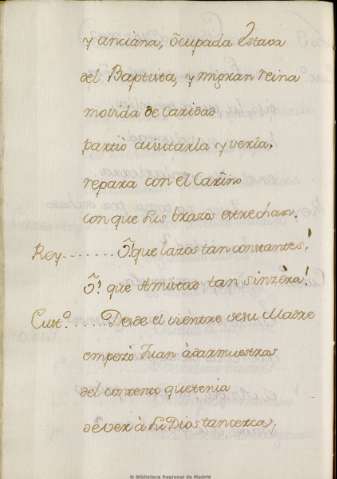 y anciana, ocupada estava
del Baptista, y mi gran reina
movida de caridad
partiò à visitarla y verla,
repara con el Cariño
con que sus brazos estrechan,
Rey....... ô! que lazos tan constantes!
ô! que Amistad tan sinzera!
Cust.º .... Desde el vientre de su Madre
empezò Juan à dar muestras
del contento que tenia
de ver à su Dios tan cerca,
© Biblioteca Regional de Madrid